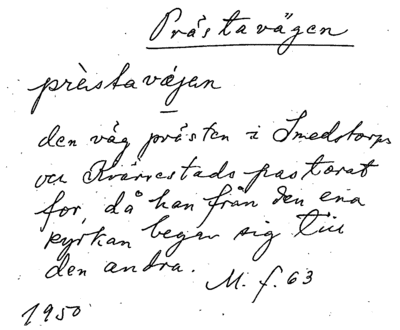 Prästavägen
prästavæjen
den väg prästen i Smedstorps
och Kvärrestads pastorat
for, då han från den ena
kyrkan begav sig till
den andra.
M. f. 63
1950